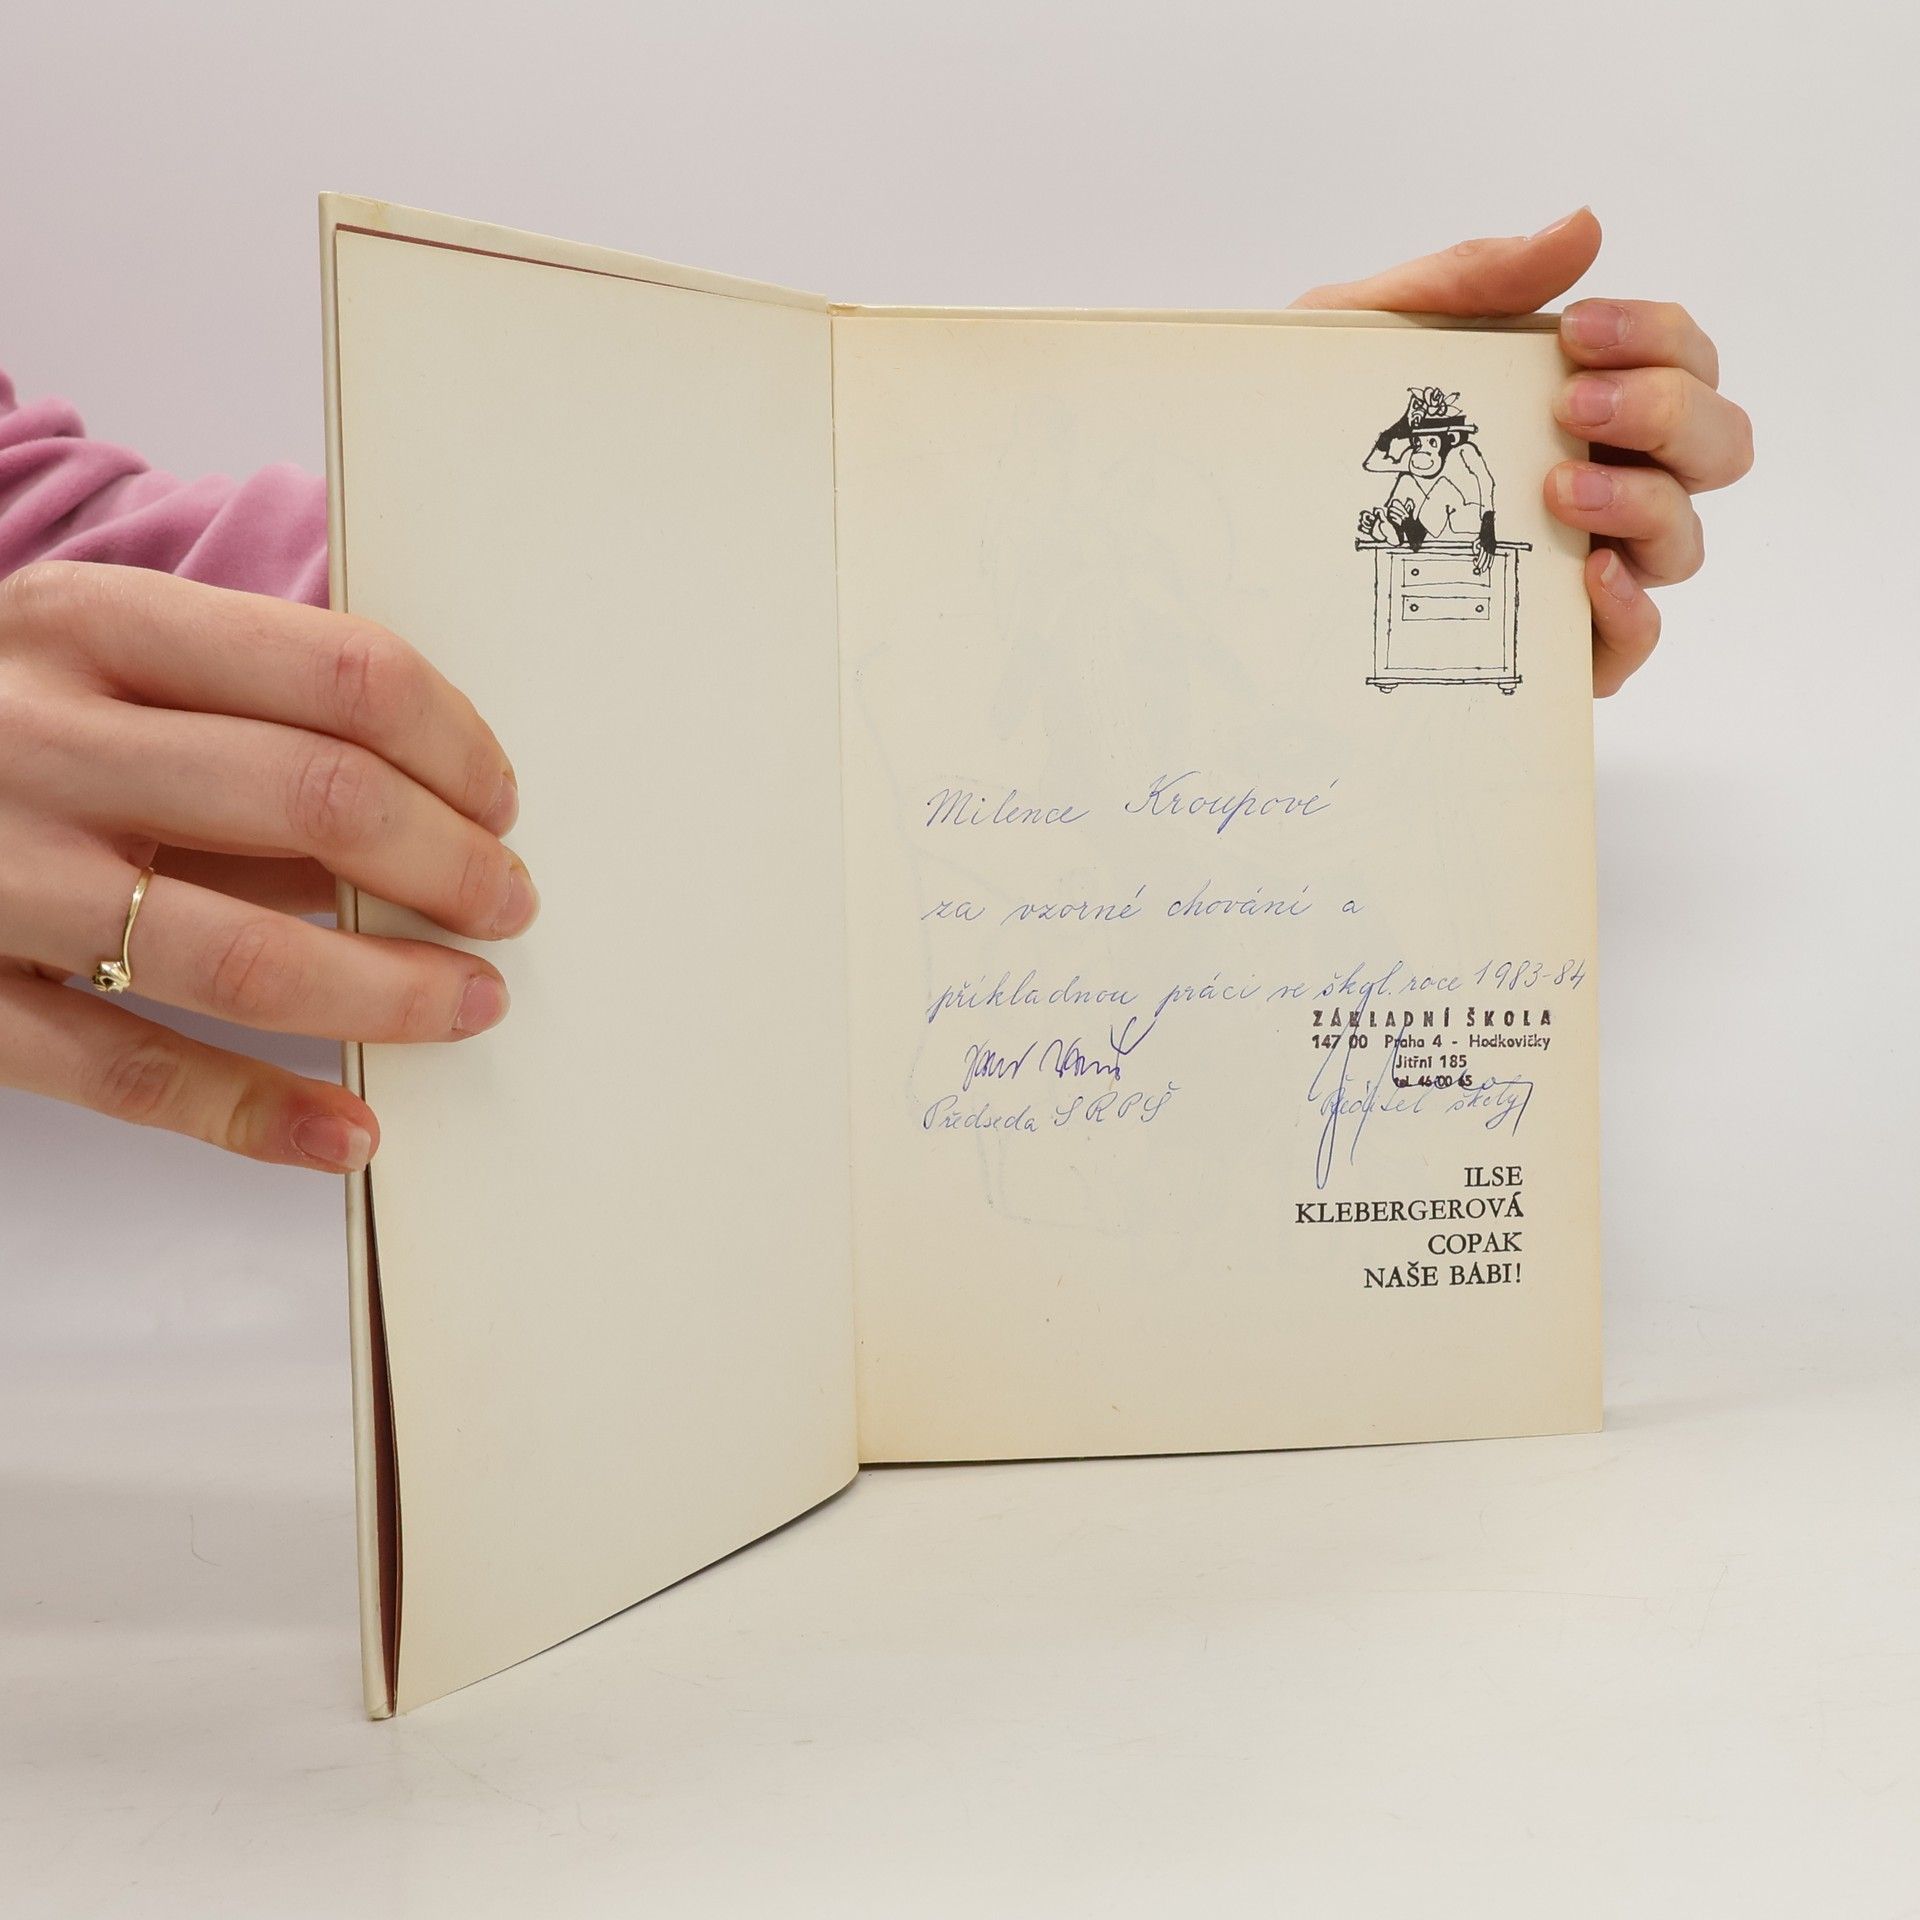 Milence Kroupové
za vzorné chování a
příkladnou práci ve škol. roce 1983-84
ZÁKLADNÍ ŠKOLA
147 00 Praha 4 - Hodkovičky
Jitřní 185
tel. 46 00 65
Předseda SRPŠ
Ředitel školy
ILSE
KLEBERGEROVÁ
COPAK
NAŠE BÁBI!